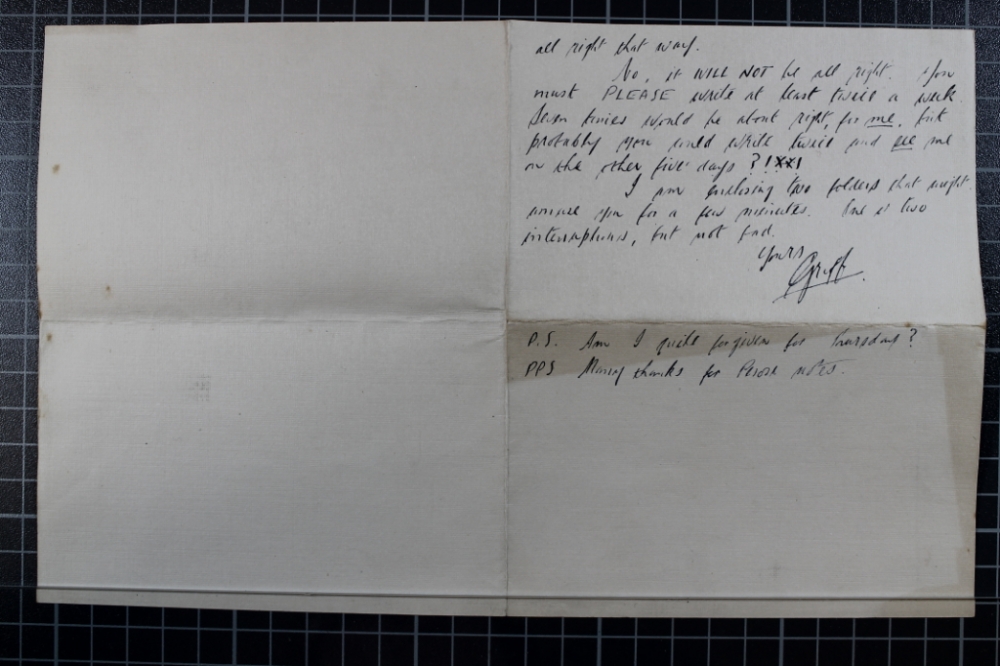 all right that way.
No, it WILL NOT be all right. You
must PLEASE write at least twice a week.
Seven times would be about right, for me, but
probably you could write twice and see me
on the other five days ?!XX!
I am enclosing two folders that might
amuse you for a few minutes. One is two
interruptions, but not bad.
Yours
Griff.
P.S. Am I quite forgiven for Thursday?
PPS Many thanks for notes.